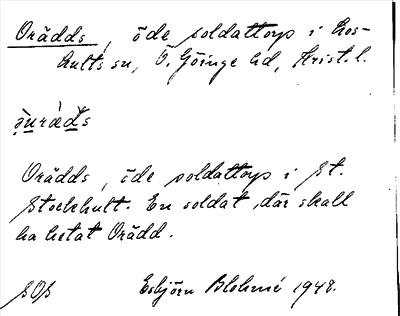 Orädds, öde soldattorp i Los-
hults sn, Ö. Göinge hd, Krist. l.
Orädds, öde soldattorp i St.
Stockhult. En soldat där skall
ha hetat Orädd.
SOS Esbjörn Blohmé 1948.